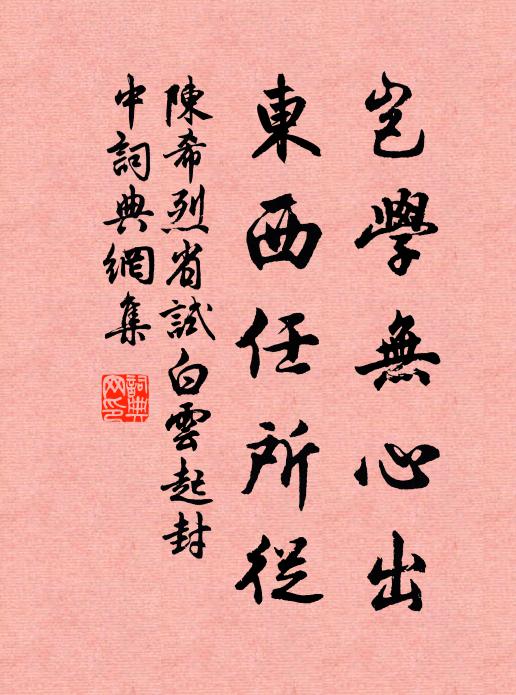 豈學無心出
東西任所從
陳希烈省試白雲起封
中詞典網集
詞典網印